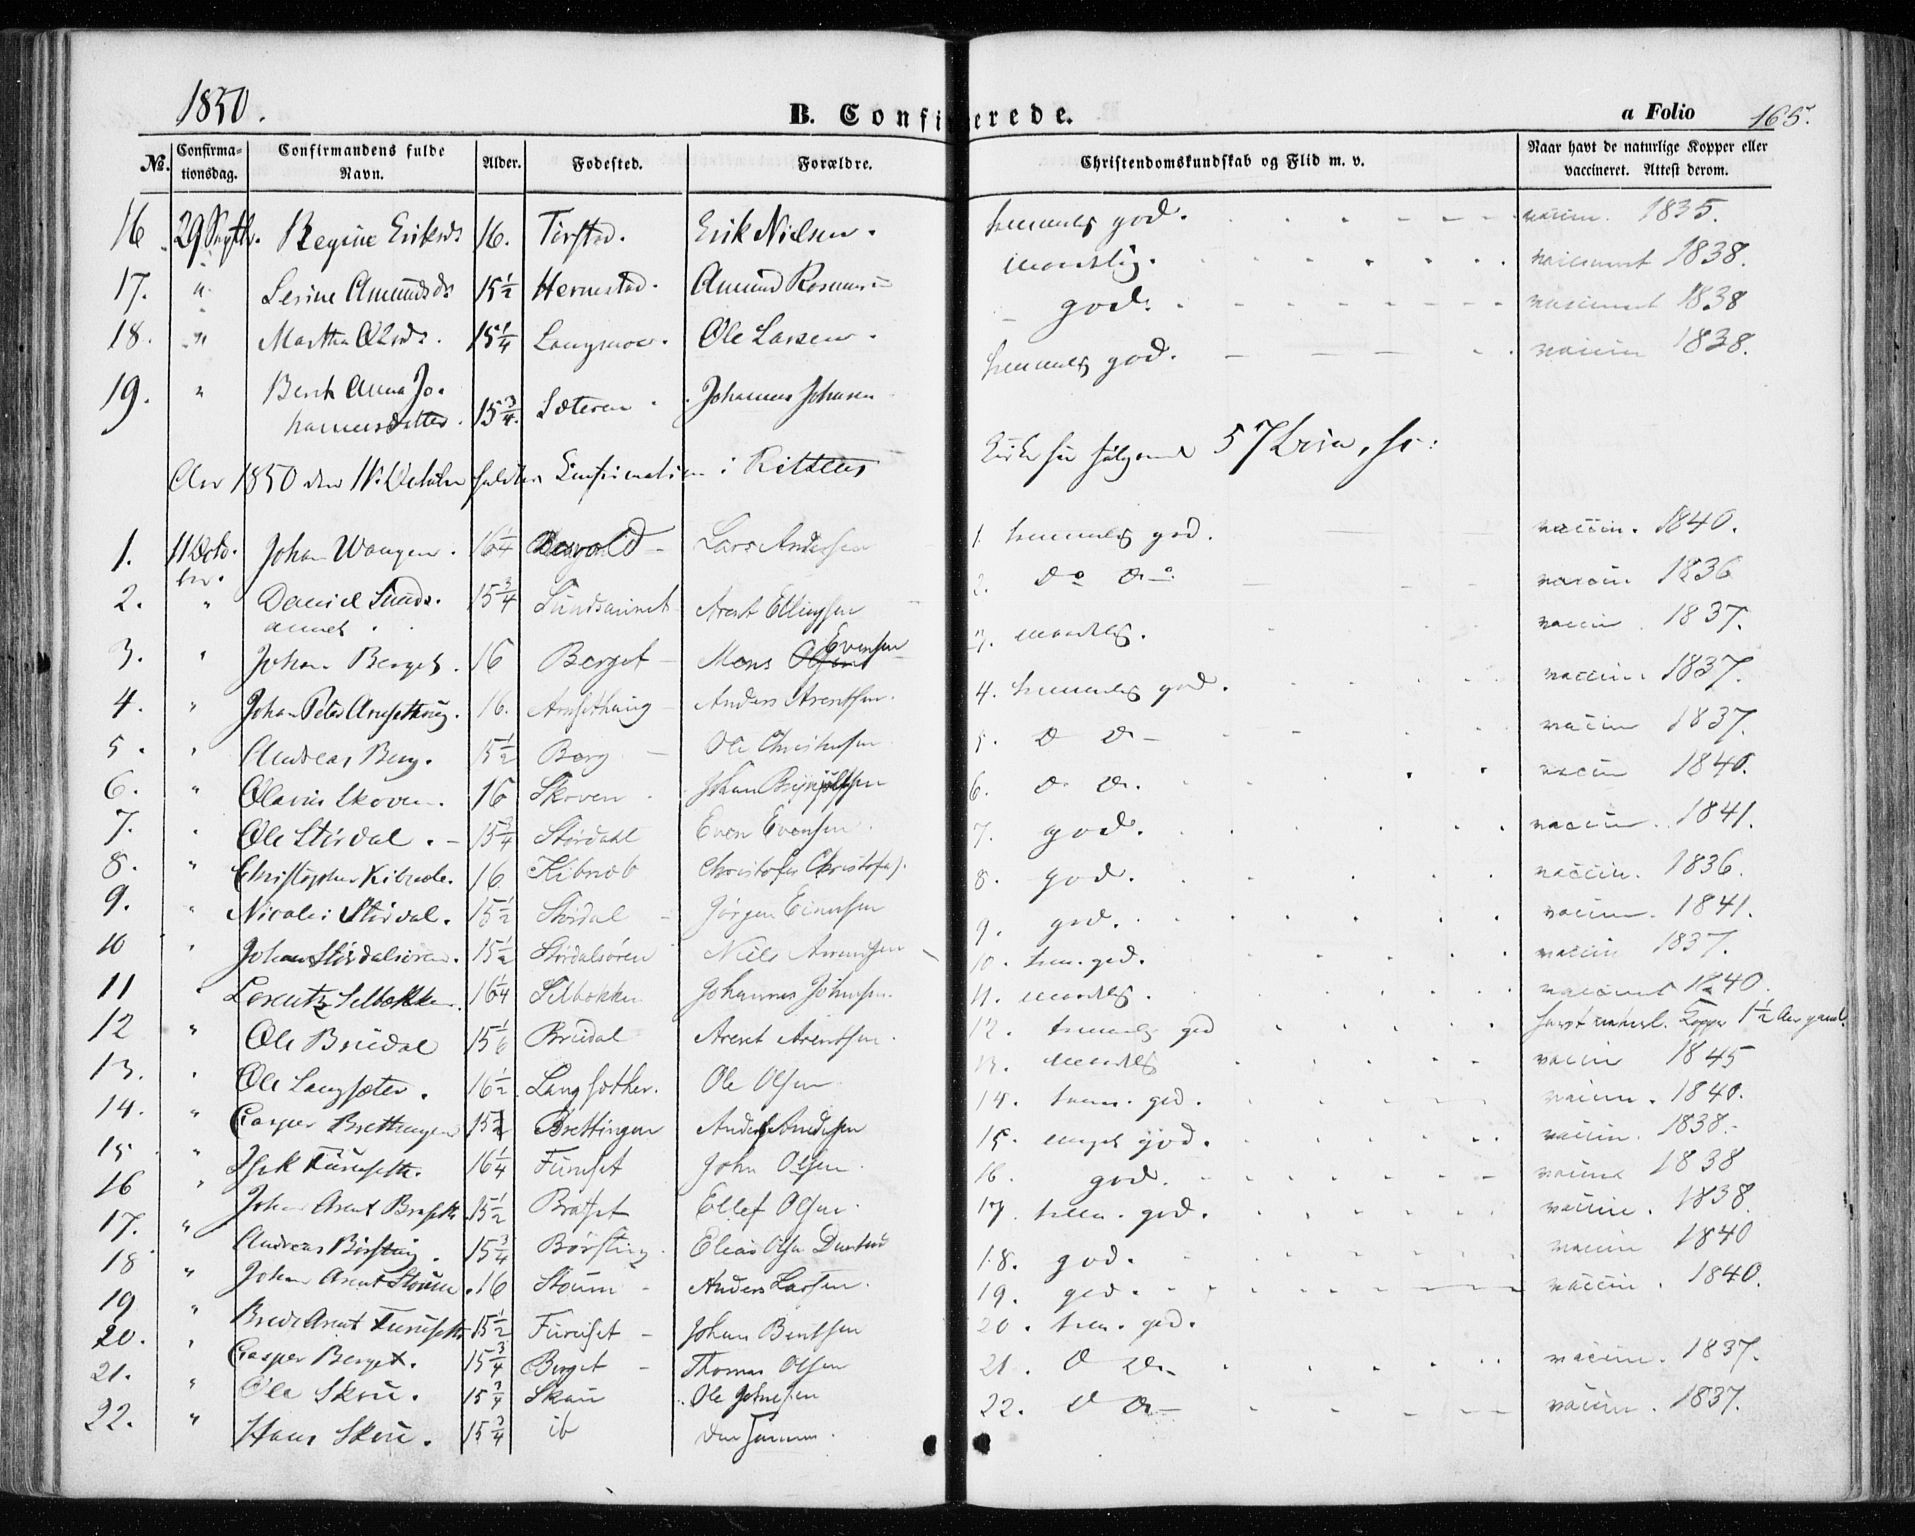 1850.
B. Confirmerede.
a Folio 165.
No. Confirmationsdag. Confirmandens fulde Navn. Alder. Fodested. Forældre. Christendomskundskab og Flid m. v. Naar havt de naturlige Kopper eller vaccineret. Attest derom.
16. 29 Septbr. Regine Eriksd. 16. Tirstad. Erik Nielsen. temmelig god. vaccin. 1835.
17. " Sesine Amundsd. 15½ Hernestad. Amund Rasmus maadelig. vaccineret 1838.
18. " Martha Olsd. 15¼ Langmoe. Ole Larsen. god. vaccineret 1838
19. " Berit Anna Johannesdatter. 15¾. Sæteren. Johannes Johnsen temmelig god. vaccin 1838.
Aar 1850 den 11 Octobr holdtes Confirmation i Rittens Kirke for følgende 57 Børn,
1. 11 Octobr. Johan Wangen. 16¼ Lars Andersen 1. temmelig god. vaccin. 1840.
2. " Daniel Sundsaunet. 15¾ Sundsaunet Arent Ellingsen 2. do do vaccin. 1836
3. " Johan Berget. 16 Berget Mons Evensen 3. maadelig. vaccin. 1837.
4. " Johan Peter Arnsethaug. 16. Arnsethaug Anders Arentsen. 4. temmelig god. vaccin. 1837.
5. " Andreas Berg. 15½ Berg Ole Christensen 5. d d vaccin 1837.
6. " Olavus Skoven. 16 Skoven Johan Brynjulfsen 6. d. d. vaccin 1840.
7. " Ole Stördal. 15¾ Stördahl Even Evensen 7. god. vaccin. 1841.
8. " Christopher Kibnæb. 16 Kibnæb Christofer Christofers. 8. god. vaccin. 1836.
9. " Nicolai Stördal. 15½ Stördal Jörgen Einersen 9. god. vaccin. 1841.
10 " Johan Stördalsören. 15½ Stördalsören Niels Arentsen 10. tem. god. vaccin 1837.
11 " Lorentz Selbekken. 16¼ Selbekken Johannes Johnsen. 11. maadelig. vaccineret 1840.
12 " Ole Brúdal 15 1/6 Brúdal Arent Arentsen. 12. temmelig god havt naturl. Kopper 1½ Aar gaml.
13. " Ole Langsæter. 16½ Langsæther. Ole Olsen 13. maadelig vaccin 1845
14. " Casper Brettingen 15½ Brettingen Anders Andersen 14. tem. god. vaccin. 1840.
15 " Isak Furuseth. 16¼ Furuset John Olsen. 15. meget god. vaccin. 1838.
16 " Johan Arent Braseth. 15½ Bratset Ellef Olsen. 16. god. vaccin 1838
17. " Andreas Börsting. 15¾ Börsting. Elias Olsen 17. tem. god. vaccin. 1838.
18 " Johan Arent Stoum. 16 Stoum Anders Larsen. 18. god. vaccin 1840
19 " Brede Arent Furuseth 15½ Furuset Johan Bentsen 19. god. vaccin. 1840.
20. " Casper Berget. 15¾ Berget Thomas Olsen 20. tem. god.
21. " Ole Skou. 15¾ Skau Ole Johnsen 21. d d vaccin. 1837.
22. " Hans Skou. 15¾ ib den samme. 22. d d vaccin. 1837.